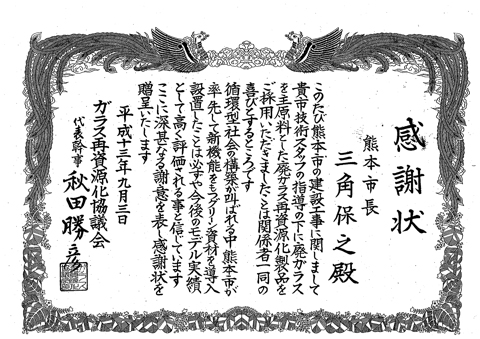 感謝状
熊本市長
三角保之殿
このたび熊本市の建設工事に関しまして
貴市技術スタッフの指導の下に廃ガラス
を主原料とした廃ガラス再資源化製品を
ご採用いただきましたことは関係者一同の
喜びとするところです
循環型社会の構築が叫ばれる中熊本市が
率先して新機能をもつグリーン資材を導入
設置したことは必ずや今後のモデル実績
として高く評価される事と信じています
ここに深甚なる謝意を表し感謝状を
贈呈いたします
平成十三年九月三日
ガラス再資源化協議会
代表幹事 秋田勝彦